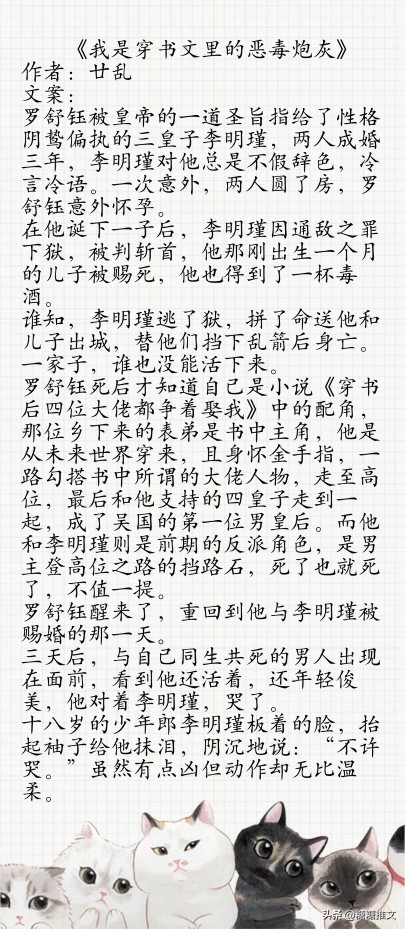 《我是穿书文里的恶毒炮灰》
作者：廿乱
文案：
罗舒钰被皇帝的一道圣旨指给了性格
阴鸷偏执的三皇子李明瑾，两人成婚
三年，李明瑾对他总是不假辞色，冷
言冷语。一次意外，两人圆了房，罗
舒钰意外怀孕。
在他诞下一子后，李明瑾因通敌之罪
下狱，被判斩首，他那刚出生一个月
的儿子被赐死，他也得到了一杯毒
酒。
谁知，李明瑾逃了狱，拼了命送他和
儿子出城，替他们挡下乱箭后身亡。
一家子，谁也没能活下来。
罗舒钰死后才知道自己是小说《穿书
后四位大佬都争着娶我》中的配角，
那位乡下来的表弟是书中主角，他是
从未来世界穿来，且身怀金手指，一
路勾搭书中所谓的大佬人物，走至高
位，最后和他支持的四皇子走到一
起，成了吴国的第一位男皇后。而他
和李明瑾则是前期的反派角色，是男
主登高位之路的挡路石，死了也就死
了，不值一提。
罗舒钰醒来了，重回到他与李明瑾被
赐婚的那一天。
三天后，与自己同生共死的男人出现
在面前，看到他还活着，还年轻俊
美，他对着李明瑾，哭了。
十八岁的少年郎李明瑾板着的脸，抬
起袖子给他抹泪，阴沉地说：“不许
哭。”虽然有点凶但动作却无比温
柔。
头条@糖糖推文